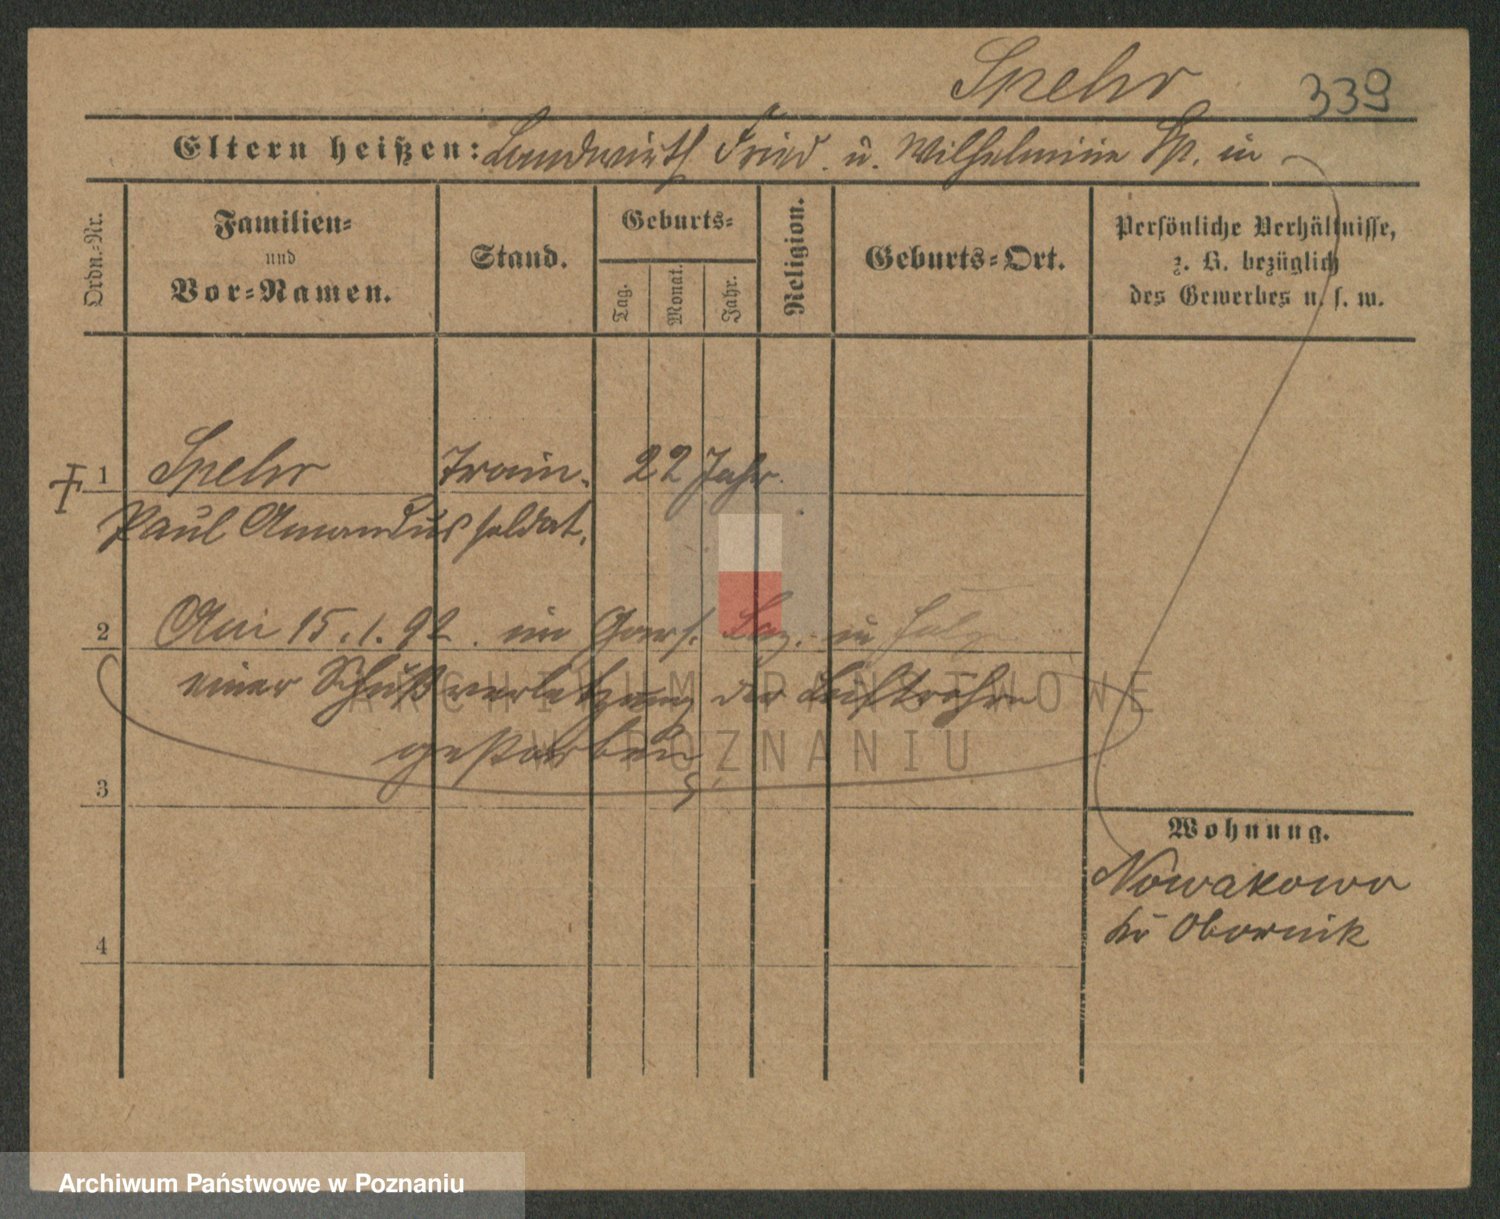 Spehr 339
Eltern heißen: Landwirth Fried. u. Wilhelmine Sp. in
Ordn.-Nr.
Familien-
und
Vor-Namen.
Stand.
Geburts-
Tag.
Monat.
Jahr.
Religion.
Geburts-Ort.
Persönliche Verhältnisse,
z. B. bezüglich
des Gewerbes u. s. w.
1 Spehr Train- 22 Jahr.
Paul Amandus soldat.
2 Am 15.1.92. im Garn. Laz. in Folge
einer Schußverletzung der Luftröhre
gestorben
3
Wohnung.
Nowakowo
Kr Obornik
4
ARCHIWUM PAŃSTWOWE
W POZNANIU
Archiwum Państwowe w Poznaniu